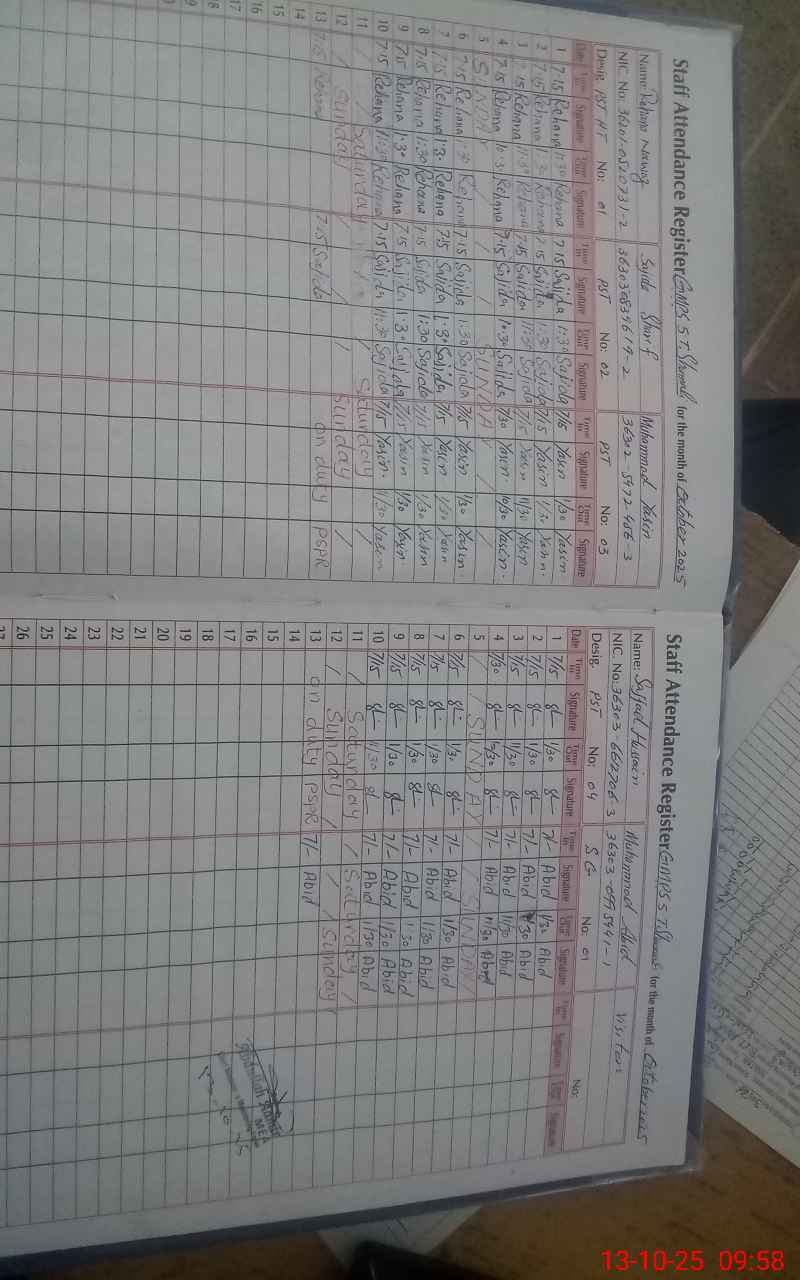 Staff Attendance Register GMPS 5 T. for the month of October 2025
Name: Rehana Nawaz Sajida Sharif Muhammad Yasin
NIC. No: 36201-0520731-2 36303-0834619-2 36302-5972456-3
Desig. PST HT No: 01 PST No: 02 PST No: 03
Date Time In Signature Time Out Signature Time In Signature Time Out Signature Time In Signature Time Out Signature
1 7:15 Rehana 1:30 Rehana 7:15 Sajida 1:30 Sajida 7/15 Yasin 1/30 Yasin
2 7:15 Rehana 1:30 Rehana 7:15 Sajida 1:30 Sajida 7/15 Yasin 1/30 Yasin
3 7:15 Rehana 11:30 Rehana 7:15 Sajida 11:30 Sajida 7/15 Yasin 11/30 Yasin
4 7:15 Rehana 10:30 Rehana 7:15 Sajida 10:30 Sajida 7/30 Yasin 10/30 Yasin
5 SUNDAY / SUNDAY /
6 7:15 Rehana 1:30 Rehana 7:15 Sajida 1:30 Sajida 7/15 Yasin 1/30 Yasin
7 7:15 Rehana 1:30 Rehana 7:15 Sajida 1:30 Sajida 7/15 Yasin 1/30 Yasin
8 7:15 Rehana 1:30 Rehana 7:15 Sajida 11:30 Sajida 7/15 Yasin 1/30 Yasin
9 7:15 Rehana 1:30 Rehana 7:15 Sajida 1:30 Sajida 7/15 Yasin 1/30 Yasin
10 7:15 Rehana 11:30 Rehana 7:15 Sajida 11:30 Sajida 7/15 Yasin 11/30 Yasin
11 / Saturday / Saturday /
12 / Sunday / / Sunday /
13 7:15 Rehana 7:15 Sajida on duty PSPR
14
15
16
17
18
Staff Attendance Register GMPS 5 T. for the month of October 2025
Name: Sajjad Hussain Muhammad Abid Visitors
NIC. No: 36303-6612706-3 36303-0995441-1
Desig. PST No: 04 S G No: 01 No:
Date Time In Signature Time Out Signature Time In Signature Time Out Signature Time In Signature Time Out Signature
1 7/15 1/30 7/- Abid 1/30 Abid
2 7/15 1/30 7/- Abid 1/30 Abid
3 7/15 11/30 7/- Abid 11/30 Abid
4 7/30 10/30 7/- Abid 11/30 Abid
5 / SUNDAY / / SUNDAY
6 7/15 1/30 7/- Abid 1/30 Abid
7 7/15 1/30 7/- Abid 1/30 Abid
8 7/15 1/30 7/- Abid 1:30 Abid
9 7/15 1/30 7/- Abid 1/30 Abid
10 7/15 11/30 7/- Abid 11/30 Abid
11 / Saturday / Saturday /
12 / Sunday / / Sunday /
13 on duty PSPR 7/- Abid
14
15
16
17
18
19
20
21
22
23
24
25
26
27
MEA
13-10-25 09:58